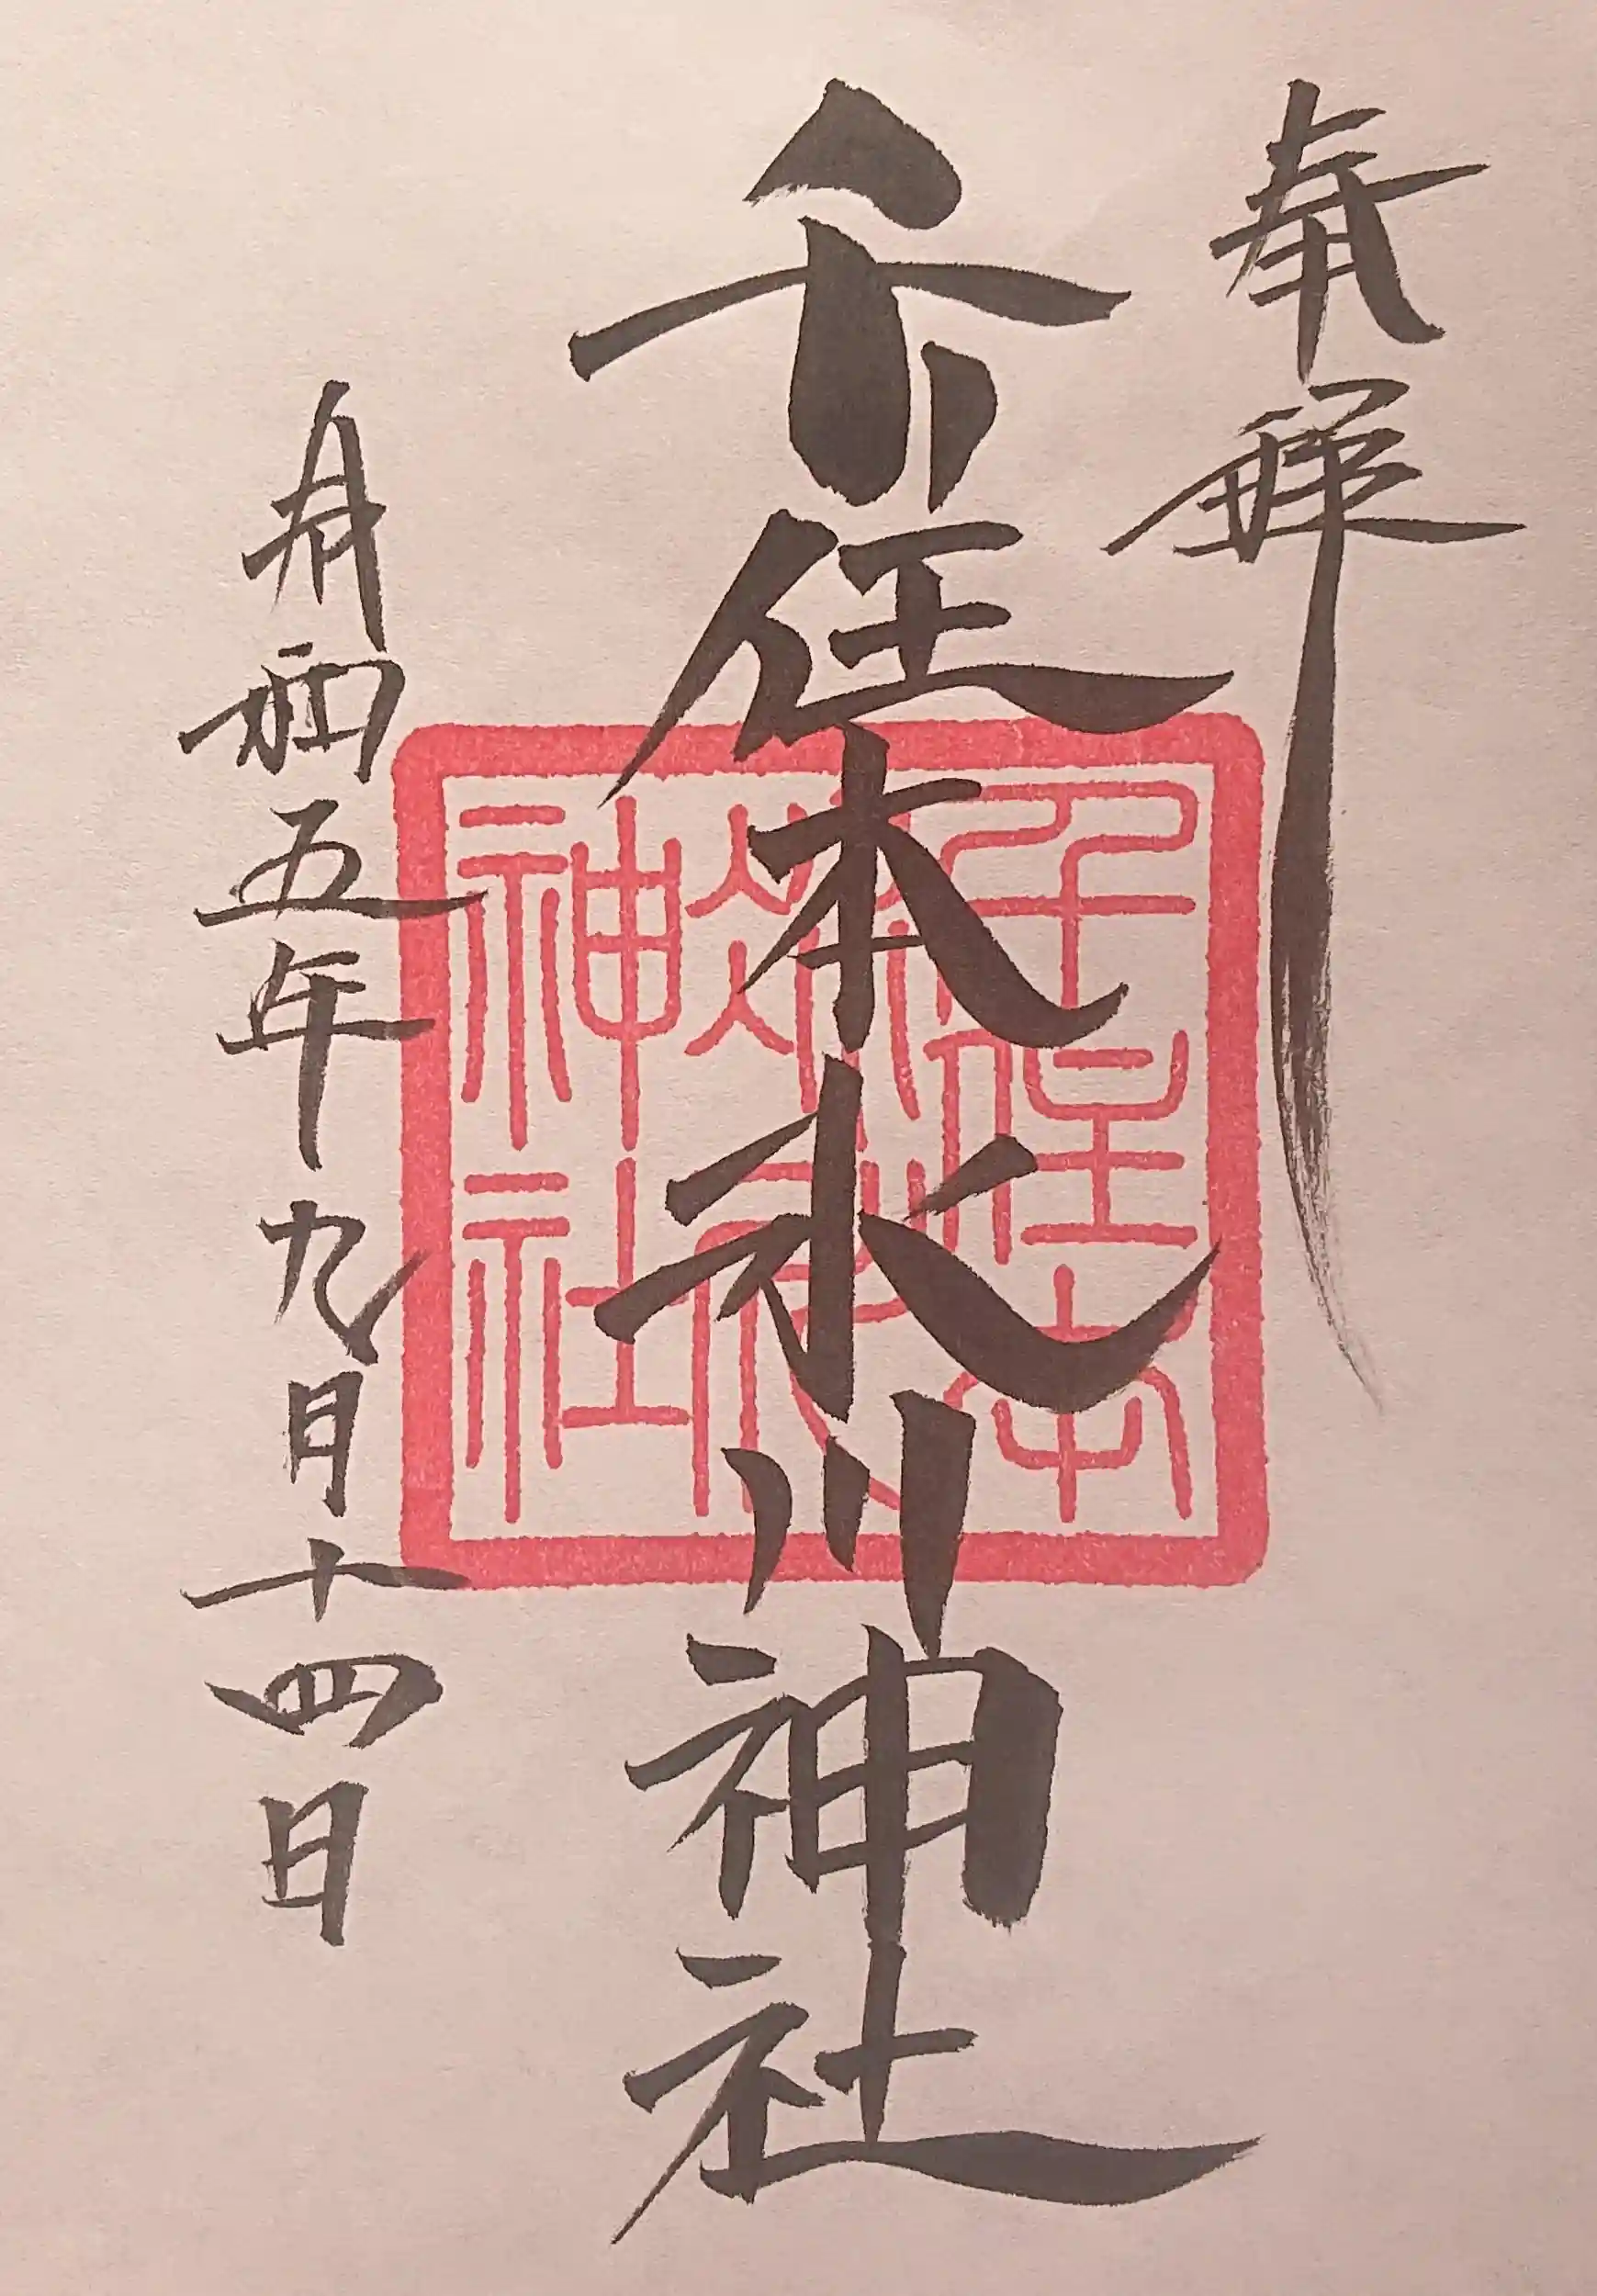 奉拝
千住本氷川神社
五年九月十四日
千住本
氷川
神社